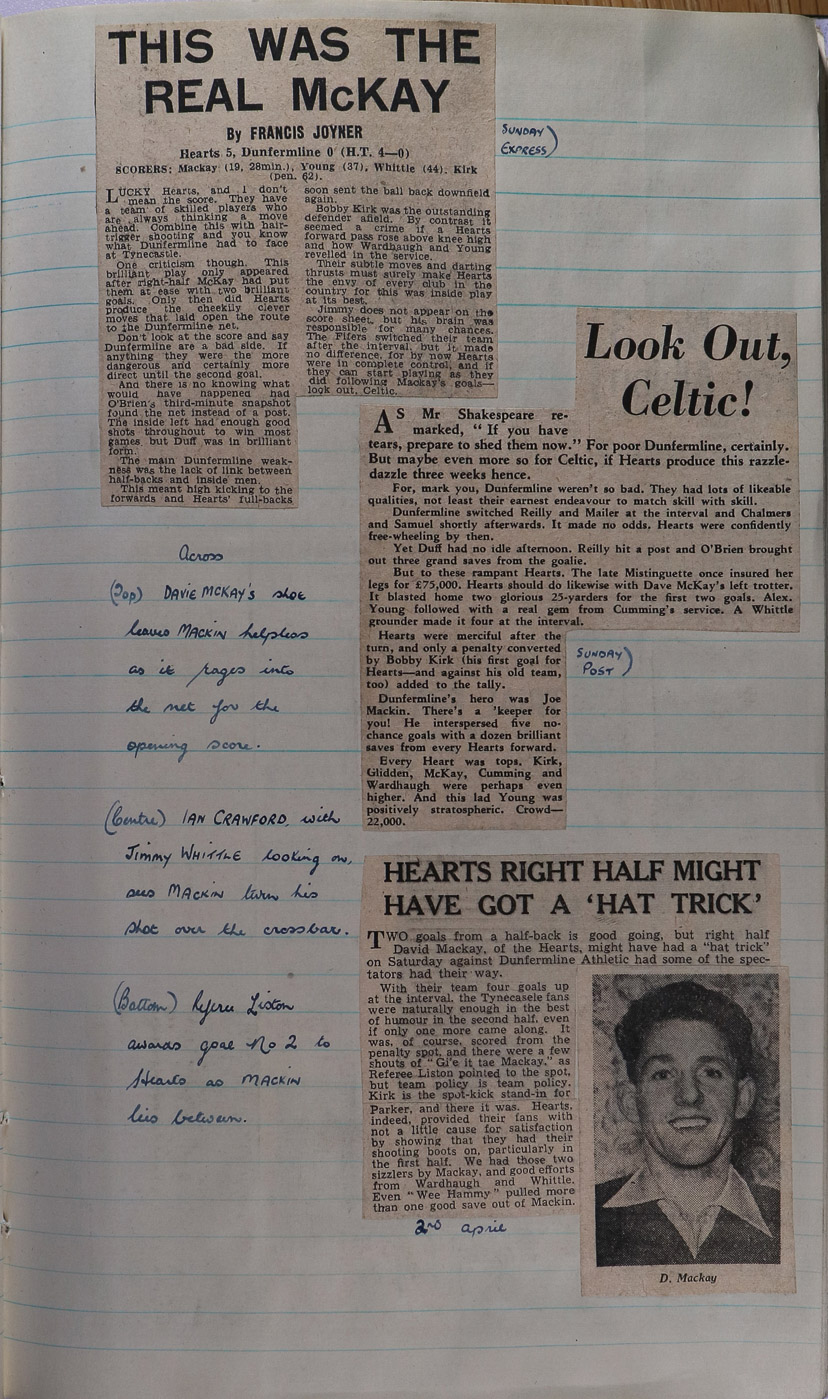 THIS WAS THE
REAL McKAY
By FRANCIS JOYNER
Hearts 5, Dunfermline 0 (H.T. 4—0)
SCORERS: Mackay (19, 28min.), Young (37), Whittle (44); Kirk
(pen. 62).
LUCKY Hearts, and I don't
mean the score. They have
a team of skilled players who
are always thinking a move
ahead. Combine this with hair-
trigger shooting and you know
what Dunfermline had to face
at Tynecastle.
One criticism though. This
brilliant play only appeared
after right-half McKay had put
them at ease with two brilliant
goals. Only then did Hearts
produce the cheekily clever
moves that laid open the route
to the Dunfermline net.
Don't look at the score and say
Dunfermline are a bad side. If
anything they were the more
dangerous and certainly more
direct until the second goal.
And there is no knowing what
would have happened had
O'Brien's third-minute snapshot
found the net instead of a post.
The inside left had enough good
shots throughout to win most
games, but Duff was in brilliant
form.
The main Dunfermline weak-
ness was the lack of link between
half-backs and inside men.
This meant high kicking to the
forwards and Hearts' full-backs
soon sent the ball back downfield
again.
Bobby Kirk was the outstanding
defender afield. By contrast it
seemed a crime if a Hearts
forward pass rose above knee high
and how Wardhaugh and Young
revelled in the service.
Their subtle moves and darting
thrusts must surely make Hearts
the envy of every club in the
country for this was inside play
at its best.
Jimmy does not appear on the
score sheet, but his brain was
responsible for many chances.
The Fifers switched their team
after the interval, but it made
no difference, for by now Hearts
were in complete control, and if
they can start playing as they
did following Mackay's goals—
look out, Celtic.
SUNDAY
EXPRESS)
Look Out,
Celtic!
AS Mr Shakespeare re-
marked, "If you have
tears, prepare to shed them now." For poor Dunfermline, certainly.
But maybe even more so for Celtic, if Hearts produce this razzle-
dazzle three weeks hence.
For, mark you, Dunfermline weren't so bad. They had lots of likeable
qualities, not least their earnest endeavour to match skill with skill.
Dunfermline switched Reilly and Mailer at the interval and Chalmers
and Samuel shortly afterwards. It made no odds. Hearts were confidently
free-wheeling by then.
Yet Duff had no idle afternoon. Reilly hit a post and O'Brien brought
out three grand saves from the goalie.
But to these rampant Hearts. The late Mistinguette once insured her
legs for £75,000. Hearts should do likewise with Dave McKay's left trotter.
It blasted home two glorious 25-yarders for the first two goals. Alex.
Young followed with a real gem from Cumming's service. A Whittle
grounder made it four at the interval.
Hearts were merciful after the
turn, and only a penalty converted
by Bobby Kirk (his first goal for
Hearts—and against his old team,
too) added to the tally.
Dunfermline's hero was Joe
Mackin. There's a 'keeper for
you! He interspersed five no-
chance goals with a dozen brilliant
saves from every Hearts forward.
Every Heart was tops. Kirk,
Glidden, McKay, Cumming and
Wardhaugh were perhaps even
higher. And this lad Young was
positively stratospheric. Crowd—
22,000.
SUNDAY
POST)
Across
(Top) DAVIE MCKAY'S shot
leaves MACKIN helpless
as it rages into
the net for the
opening score.
(Centre) IAN CRAWFORD, with
Jimmy WHITTLE looking on,
sees MACKIN turn his
shot over the crossbar.
(Bottom) Liston
awards goal No 2 to
Hearts as MACKIN
lies between.
HEARTS RIGHT HALF MIGHT
HAVE GOT A 'HAT TRICK'
TWO goals from a half-back is good going, but right half
David Mackay, of the Hearts, might have had a "hat trick"
on Saturday against Dunfermline Athletic had some of the spec-
tators had their way.
With their team four goals up
at the interval, the Tynecasele fans
were naturally enough in the best
of humour in the second half, even
if only one more came along. It
was, of course, scored from the
penalty spot, and there were a few
shouts of "Gi'e it tae Mackay," as
Referee Liston pointed to the spot,
but team policy is team policy.
Kirk is the spot-kick stand-in for
Parker, and there it was. Hearts,
indeed, provided their fans with
not a little cause for satisfaction
by showing that they had their
shooting boots on, particularly in
the first half. We had those two
sizzlers by Mackay, and good efforts
from Wardhaugh and Whittle.
Even "Wee Hammy" pulled more
than one good save out of Mackin.
D. Mackay
april